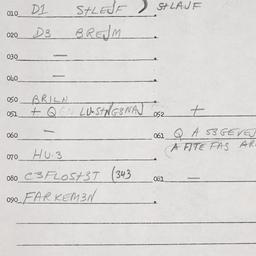 010 D1 S+LEJF ) S+LAJF
020 D3 BREJM
030 —
040 —
050 BRILN
051 + Q LU·S+NG3NAJ 052 +
060 — 061 Q A S3GEVEJ
(A FITE FAS AR
070 HU·3
080 C3FLOS+3T (343 081 —
090 FARKEM3N